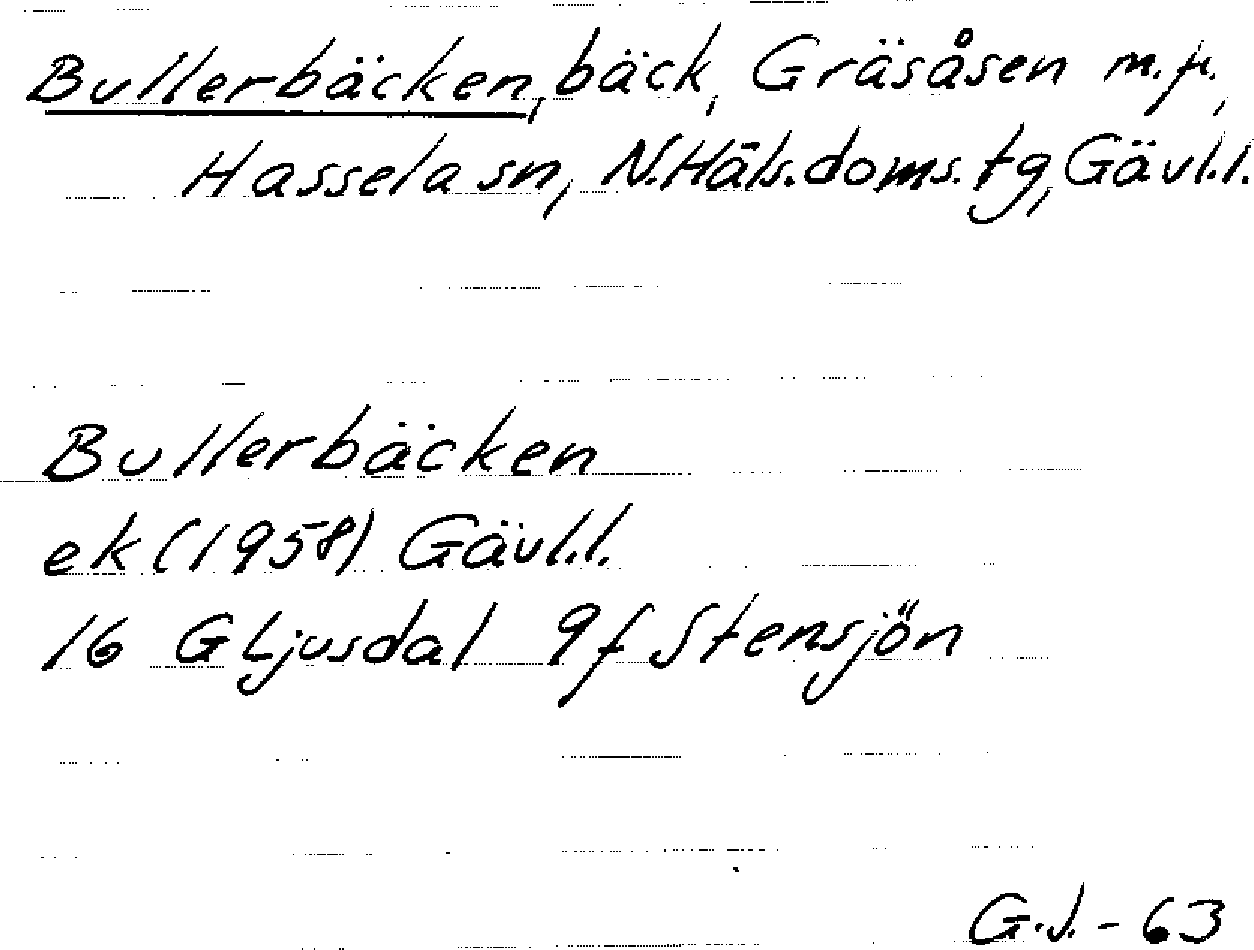 Bullerbäcken, bäck, Gräsåsen m.fl.,
Hassela sn, N.Häls.doms.tg, Gävl.l.
Bullerbäcken
ek (1958) Gävl.l.
16 G Ljusdal 9f Stensjön
G.J. - 63